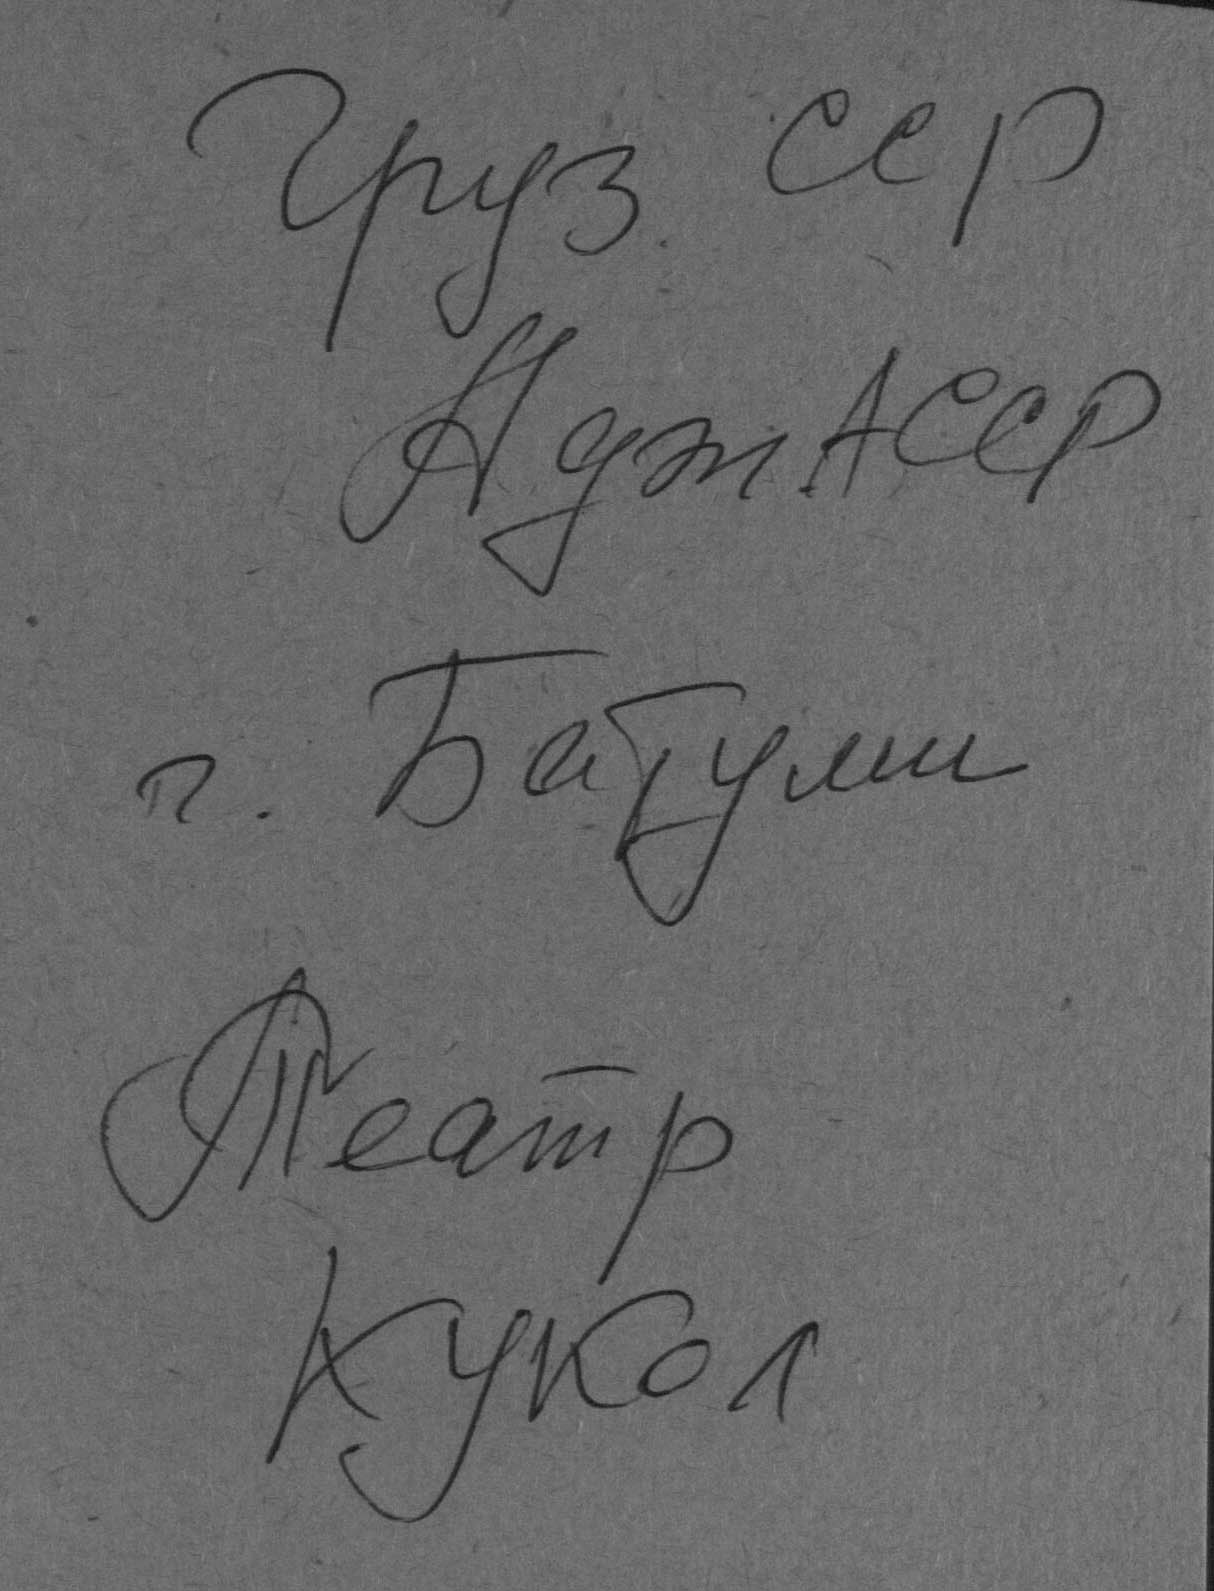 Груз. ССР
Адж. АССР
г. Батуми
Театр
Кукол